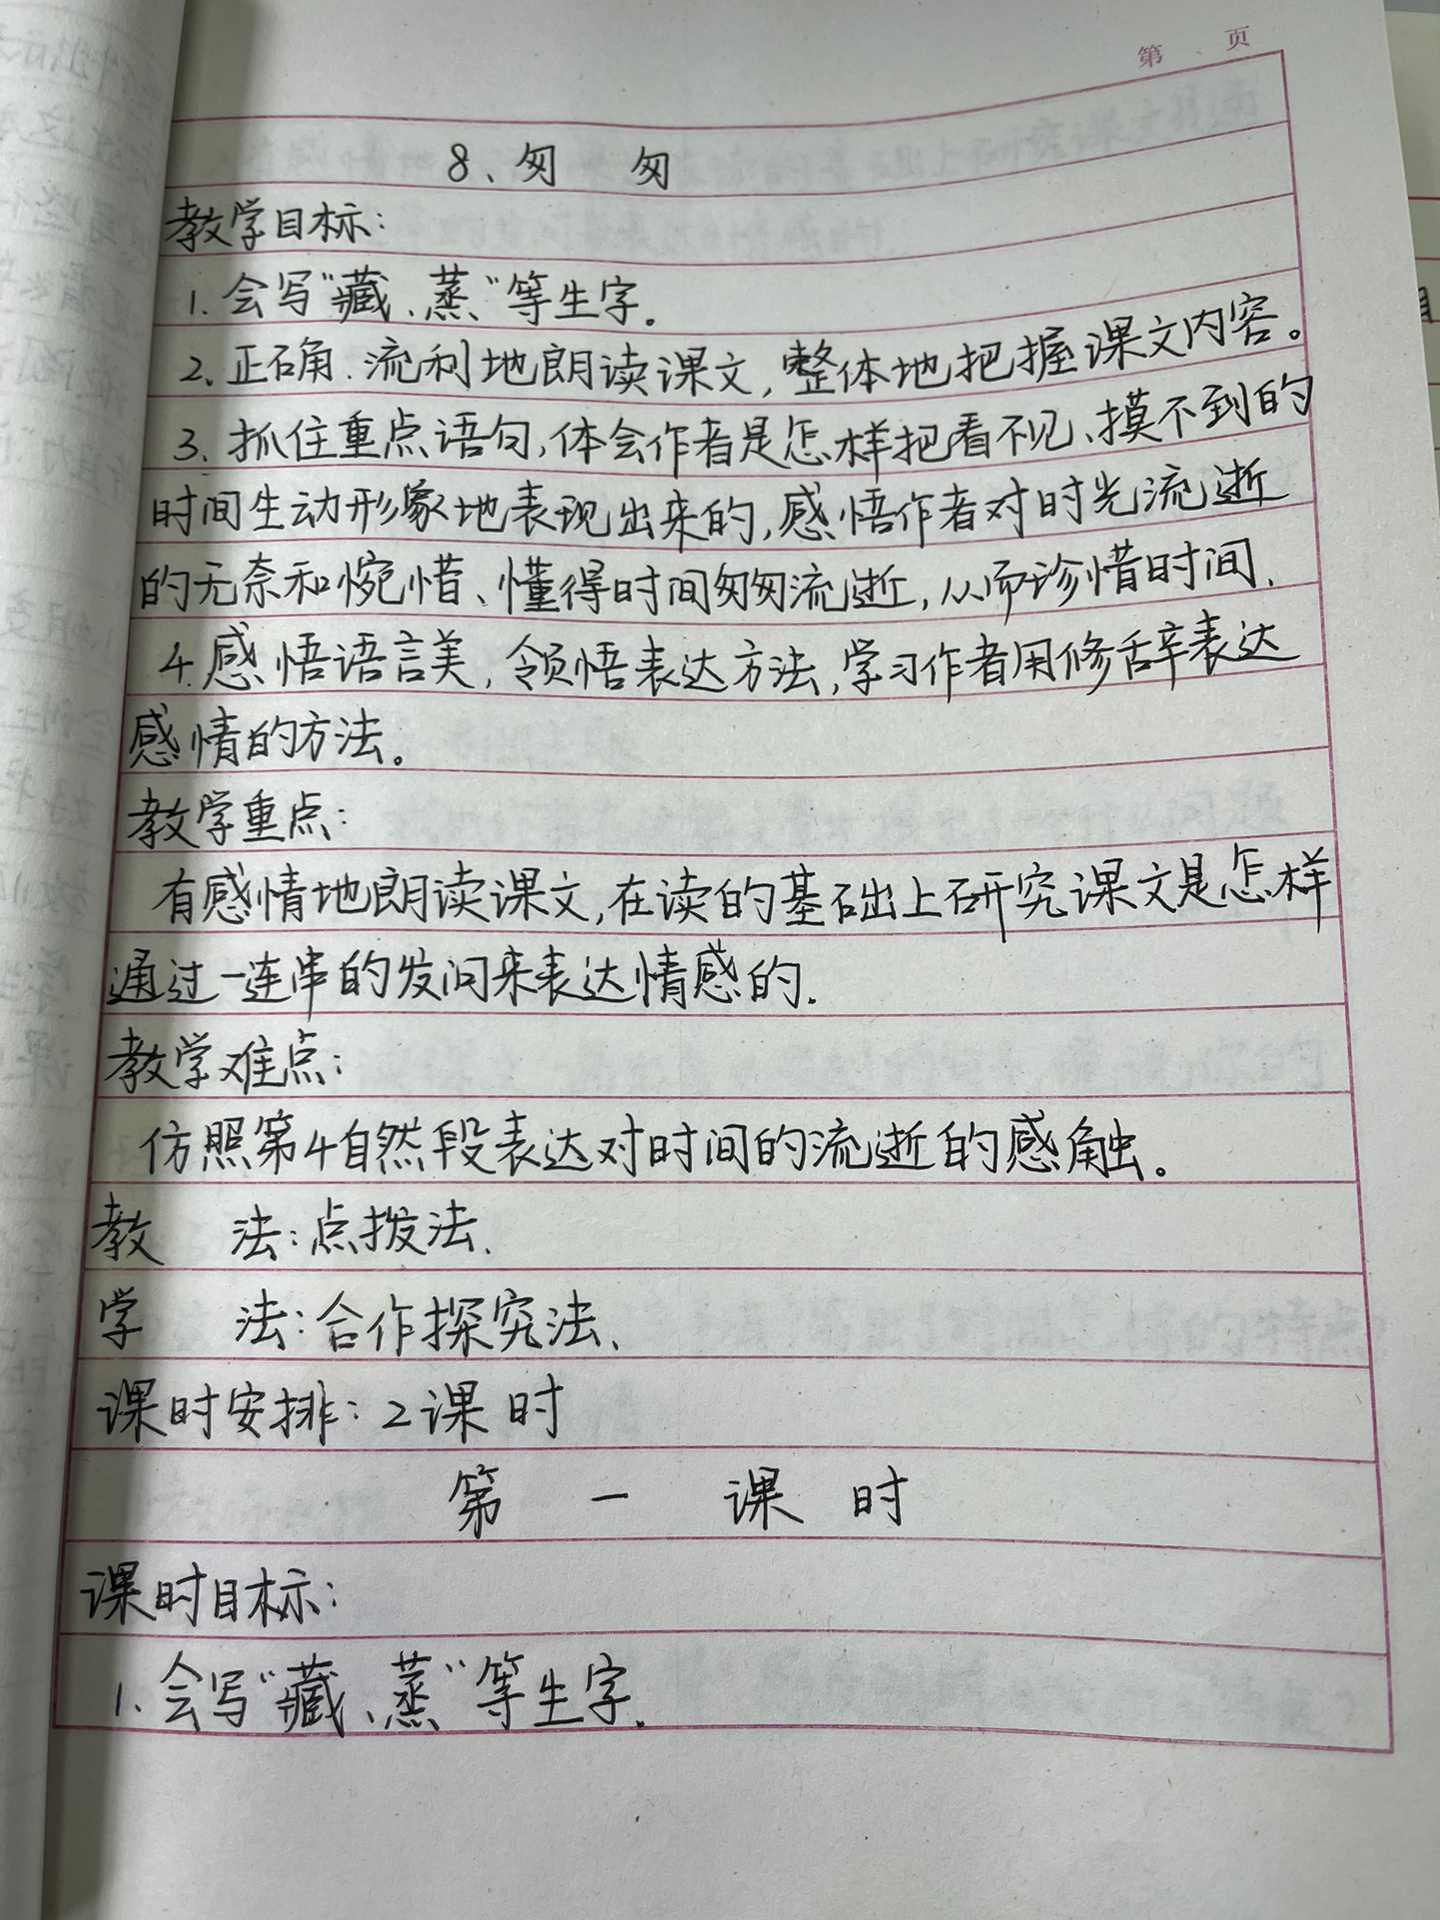 第 页
8、匆 匆
教学目标:
1. 会写“藏、蒸”等生字.
2. 正确.流利地朗读课文,整体地把握课文内容。
3. 抓住重点语句,体会作者是怎样把看不见、摸不到的
时间生动形象地表现出来的,感悟作者对时光流逝
的无奈和惋惜、懂得时间匆匆流逝,从而珍惜时间.
4.感悟语言美,领悟表达方法,学习作者用修辞表达
感情的方法。
教学重点:
有感情地朗读课文,在读的基础上研究课文是怎样
通过一连串的发问来表达情感的.
教学难点:
仿照第4自然段表达对时间的流逝的感触。
教 法:点拨法.
学 法:合作探究法、
课时安排:2课时
第 一 课 时
课时目标:
1.会写“藏、蒸”等生字.